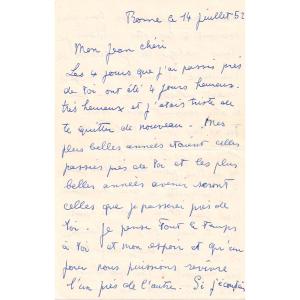 Bonne le 14 juillet 52
Mon Jean chéri
Les 4 jours que j'ai passés près
de toi ont été 4 jours heureux.
très heureux et j'étais triste de
te quitter de nouveau. Mes
plus belles années étaient celles
passées près de toi et les plus
belles années avenir seront
celles que je passerai près de
toi. Je pense tout le temps
à toi et mon espoir et qu'un
jour nous puissions revivre
l'un près de l'autre. Si